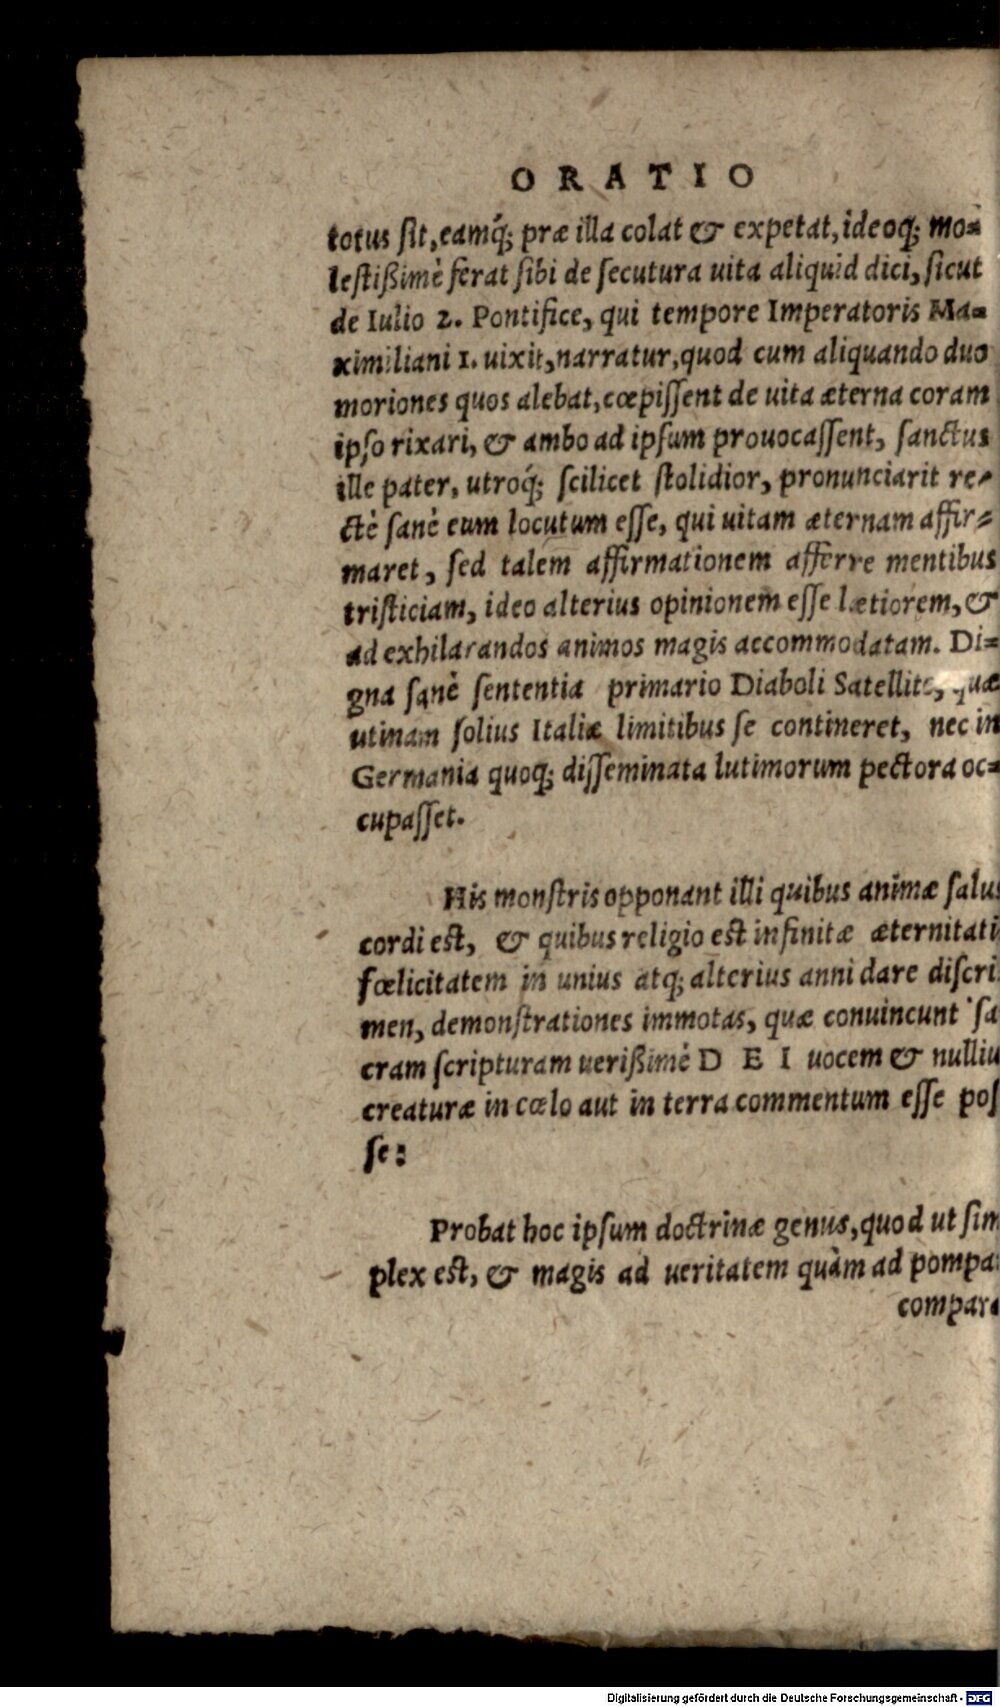 ORATIO
totus ſit, eamq́; præ illa colat & expetat, ideoq; mo=
leſtißimè ferat ſibi de ſecutura uita aliquid dici, ſicut
de Iulio 2. Pontifice, qui tempore Imperatoris Ma=
ximiliani 1. uixit, narratur, quod cum aliquando duo
moriones quos alebat, cœpiſſent de uita æterna coram
ipſo rixari, & ambo ad ipſum prouocaſſent, ſanctus
ille pater, utroq́; ſcilicet ſtolidior, pronunciarit re=
ctè ſanè eum locutum eſſe, qui uitam æternam affir=
maret, ſed talem affirmationem afferre mentibus
triſticiam, ideo alterius opinionem eſſe lætiorem, &
ad exhilarandos animos magis accommodatam. Di=
gna ſanè ſententia primario Diaboli Satellite, quæ
utinam ſolius Italiæ limitibus ſe contineret, nec in
Germania quoq; diſſeminata lutimorum pectora oc=
cupaſſet.
His monſtris opponant illi quibus animæ ſalus
cordi eſt, & quibus religio eſt infinitæ æternitati
fœlicitatem in unius atq; alterius anni dare diſcri
men, demonſtrationes immotas, quæ conuincunt ſa
cram ſcripturam uerißimè DEI uocem & nulliu
creaturæ in cœlo aut in terra commentum eſſe poſ
ſe:
Probat hoc ipſum doctrinæ genus, quod ut ſim
plex eſt, & magis ad ueritatem quàm ad pompa
compara
Digitalisierung gefördert durch die Deutsche Forschungsgemeinschaft - DFG